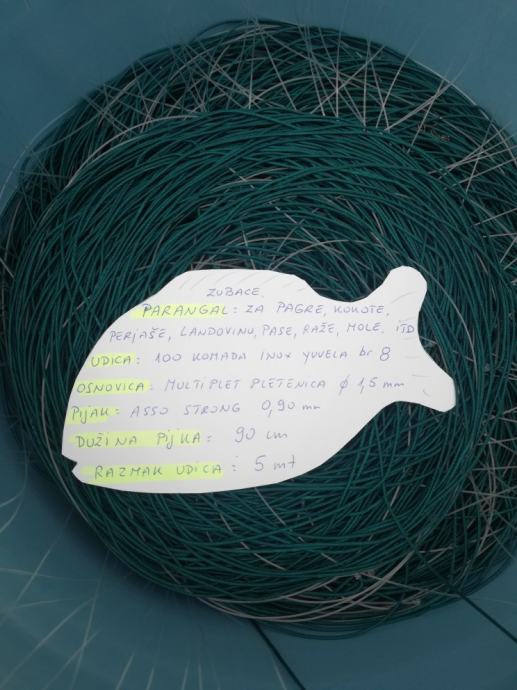 ZUBACE,
PARANGAL: ZA PAGRE, KOKOTE,
PERJAŠE, LANDOVINU, PASE, RAŽE, MOLE, ITD
UDICA: 100 KOMADA INOX YUVELA br 8
OSNOVICA: MULTIPLET PLETENICA ϕ 1,5 mm
PIJAK: ASSO STRONG 0,90 mm
DUŽINA PIJKA: 90 cm
RAZMAK UDICA: 5 mt